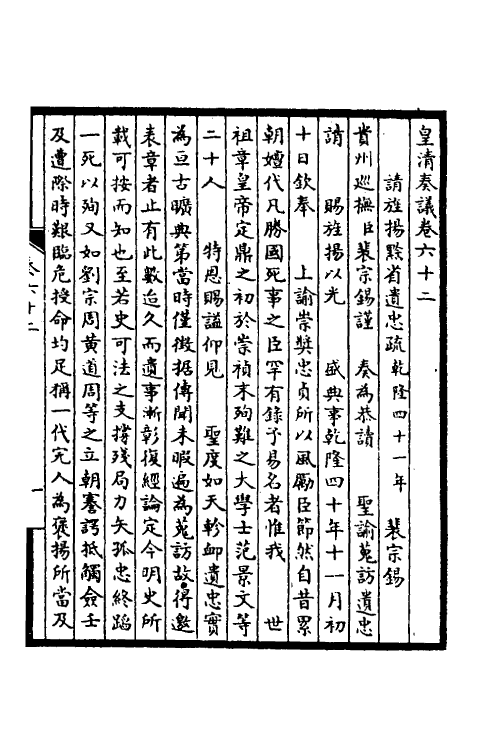 皇清奏議卷六十二
請旌揚黔省遺忠疏乾隆四十一年 裴宗錫
貴州巡撫臣裴宗錫謹 奏為恭請 聖諭蒐訪遺忠
請 賜旌揚以光 盛典事乾隆四十年十一月初
十日欽奉 上諭崇獎忠貞所以風勵臣節然自昔累
朝嬗代凡勝國死事之臣罕有錄予易名者惟我 世
祖章皇帝定鼎之初於崇禎末殉難之大學士范景文等
二十人 特恩賜諡仰見 聖度如天軫卹遺忠實
為亘古曠典第當時僅徵据傳聞未暇遍為蒐訪故得邀
表章者止有此數迨久而遺事漸彰復經論定今明史所
載可按而知也至若史可法之支撐殘局力矢孤忠終蹈
一死以殉又如劉宗周黄道周等之立朝謇諤抵觸僉壬
及遭際時艱臨危授命均足稱一代完人為褒揚所當及
卷六十二
一